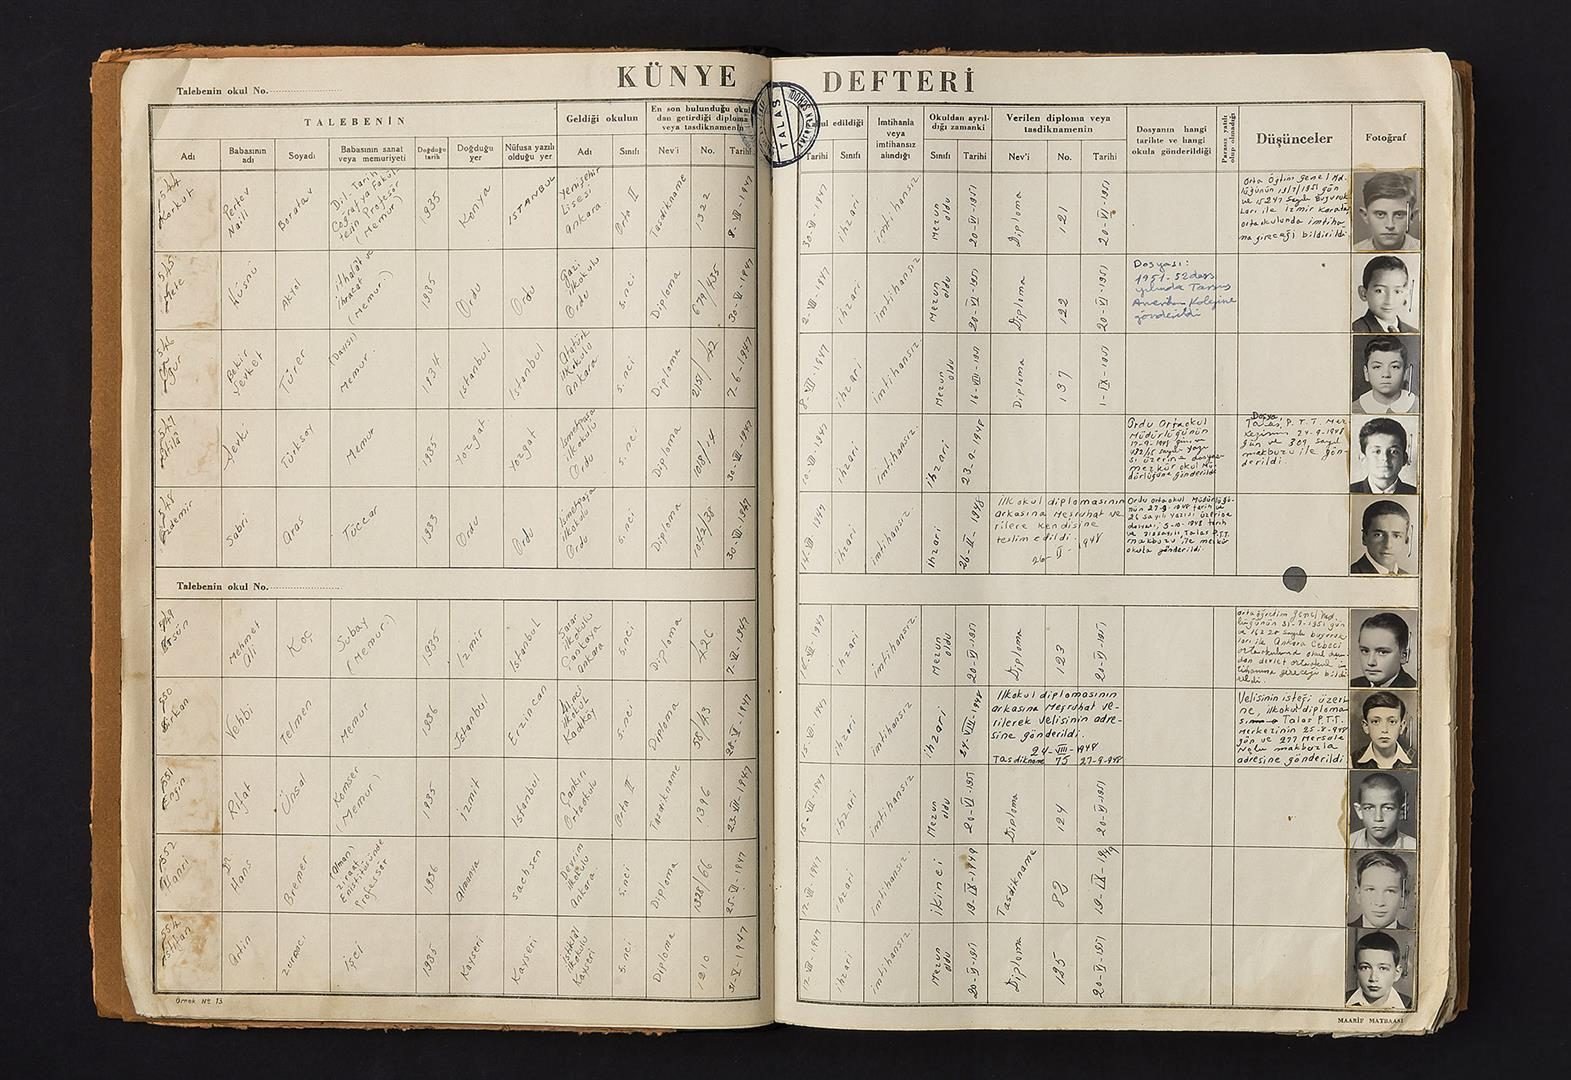 KÜNYE DEFTERİ
Talebenin okul No.
TALEBENİN
Geldiği okulun
En son bulunduğu okul-
dan getirdiği diploma
veya tasdiknamenin
TALAS
Kabul edildiği
İmtihanla
veya
imtihansız
alındığı
Okuldan ayrıl-
dığı zamanki
Verilen diploma veya
tasdiknamenin
Dosyanın hangi
tarihte ve hangi
okula gönderildiği
Parasız yatılı
olup olmadığı
Düşünceler
Fotoğraf
Adı
Babasının
adı
Soyadı
Babasının sanat
veya memuriyeti
Doğduğu
tarih
Doğduğu
yer
Nüfusa yazılı
olduğu yer
Adı
Sınıfı
Nev'i
No.
Tarihi
Tarihi
Sınıfı
Sınıfı
Tarihi
Nev'i
No.
Tarihi
544
Korkut
Pertev
Naili
Boratav
Dil-Tarih
Coğrafya Fakül
tesin Profesör
(Memur)
1935
Konya
İSTANBUL
Yenişehir
Lisesi
Ankara
Orta II
Tasdikname
1322
8-VII-1947
30-VI-1947
ihzari
imtihansız
Mezun
oldu
20-VI-1951
Diploma
121
20-VI-1951
Orta Öğtim Genel Md.
lüğünün 13/7/1951 gün
ve 15247 Sayılı Buyuruk
ları ile İzmir Karataş
ortaokulunda imtiha
na gireceği bildirildi.
545
Mete
Hüsnü
Akyol
ithalât ve
ihracat
(Memur)
1935
Ordu
Ordu
Gazi
ilkokulu
Ordu
5.nci
Diploma
679/435
30-VI-1947
2-VII-1947
ihzari
imtihansız
Mezun
oldu
20-VI-1951
Diploma
122
20-VI-1951
Dosyası:
1951-52 ders
yılında Tarsus
Amerikan Kolejine
gönderildi
546
Uğur
Bekir
Şevket
Türer
Memur.
1934
İstanbul
İstanbul
Atatürk
ilkokulu
Ankara
5.nci
Diploma
2151/42
7-6-1947
8-VII-1947
ihzari
imtihansız.
Mezun
oldu
16-VIII-1951
Diploma
137
1-IX-1951
547
Atilâ
Şevki
Türksoy
Memur
1935
Yozgat
Yozgat
İsmetpaşa
ilkokulu
Ordu
5.nci
Diploma
1018/14
30-VI-1947
10-VII-1947
ihzari
imtihansız.
ihzari
23-9-1948
Ordu Ortaokul
Müdürlüğünün
17-9-1948 gün ve
sayılı yazı
sı üzerine dosyası
mezkûr okul Mü-
dürlüğüne gönderildi
Dosya
Talas, P.T.T. Mer
kezinin 24-9-1948
gün ve 309 sayılı
makbuzu ile gön-
derildi.
548
Özdemir
Sabri
Aras
Tüccar
1933
Ordu
Ordu
İsmetpaşa
ilkokulu
Ordu
5.nci
Diploma
1042/38
30-VI-1947
14-VII-1947
ihzari
imtihansız.
ihzari
26-II-1948
ilkokul diplomasının
arkasına Meşruhat ve
rilere kendisine
teslim edildi.
26-II-1948
Ordu ortaokul Müdürlüğü-
nün 27-9-1948 tarih ve
26 sayılı yazısı üzerine
dosyası, 5-10-1948 tarih
ve sayılı, Talas P.T.T.
makbuzu ile mezkûr
okula gönderildi.
Talebenin okul No.
549
Ersün
Mehmet
Ali
Koç
Subay
(Memur)
1935
İzmir
İstanbul
Sarar
ilkokulu
Çankaya
Ankara
5.nci
Diploma
426
7-VI-1947
ihzari
imtihansız.
Mezun
oldu
20-VI-1951
Diploma
123
20-VI-1951
Ortaöğretim genel Müd.
lüğünün 31-7-1951 gün
ve 16220 sayılı buyruk
ları ile Ankara Cebeci
ortaokulunda okul
dan devlet ortaokul im
tihanına gireceği bildi
rildi.
550
Birkan
Vehbi
Telmen
Memur
1936
İstanbul
Erzincan
ilkokul
Kadıköy
5.nci
Diploma
58/43
28-V-1947
15-VII-1947
ihzari
imtihansız
ihzari
24-VIII-1948
ilkokul diplomasının
arkasına Meşruhat ve-
rilerek velisinin adre-
sine gönderildi.
24-VIII-1948
Tasdikname 75 27-9-948
Velisinin isteği üzeri
ne, ilkokul diploma
sının Talas P.T.T.
Merkezinin 25-8-948
gün ve 277 Mersule
Nolu makbuzla
adresine gönderildi.
551
Engin
Rifat
Ünsal
Komser
(Memur)
1935
İzmit
İstanbul
Çankırı
Ortaokulu
Orta II
Tasdikname
1396
23-VII-1947
15-VII-1947
ihzari
imtihansız
Mezun
oldu
20-VI-1951
Diploma
124
20-VI-1951
552
Hani
Dr.
Hans
Bremer
(Alman)
Ziraat
Enstitüsünde
Profesör
1936
Almanya
Sachsen
Devrim
ilkokulu
Ankara.
5.nci
Diploma
1328/66
25-VI-1947
17-VII-1947
ihzari
imtihansız.
ikinci
19-IX-1949
Tasdikname
82
19-IX-1949
554
Artin
Zurnacı
İşçi
1935
Kayseri
Kayseri
istiklâl
ilkokulu
Kayseri
5.nci
Diploma
1210
31-V-1947
17-VII-1947
ihzari
imtihansız
Mezun
oldu
20-VI-1951
Diploma
125
20-VI-1951
Örnek No 13
MAARİF MATBAASI